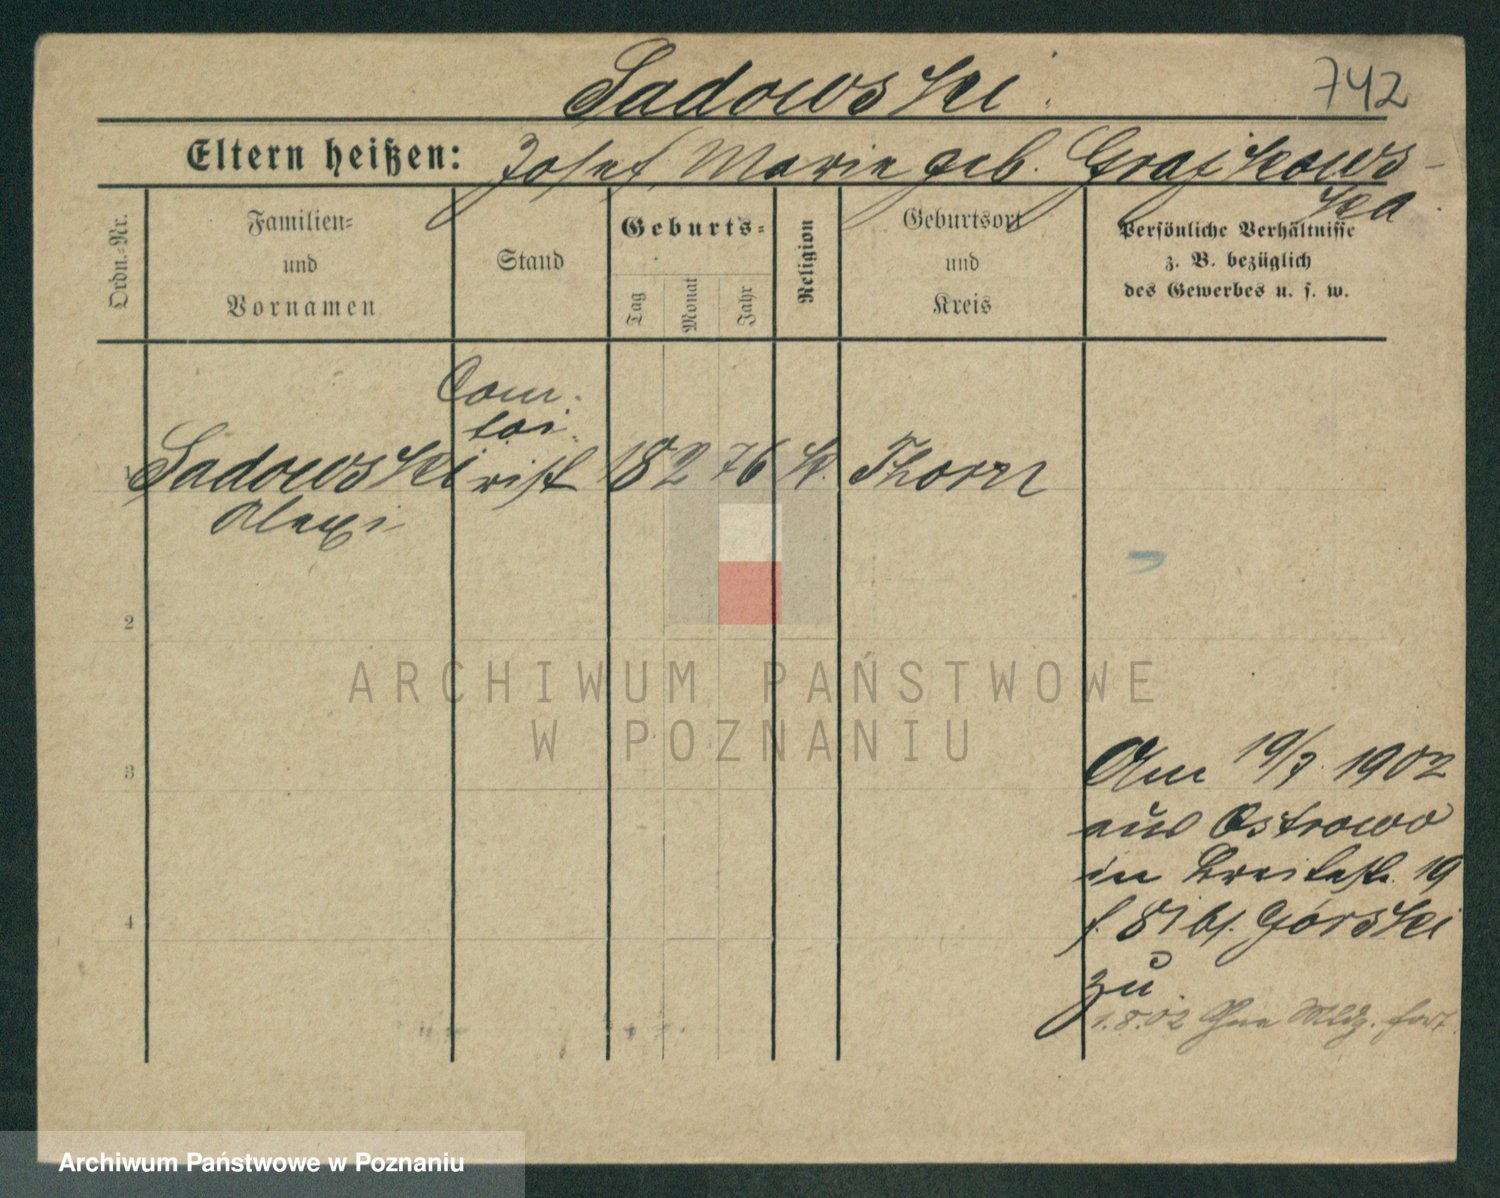 Sadowski.
742
Eltern heißen: Josef, Marie geb. Grajkows-
ka.
Ordn.-Nr.
Familien-
und
Vornamen
Stand
Geburts-
Tag
Monat
Jahr
Religion
Geburtsort
und
Kreis
Persönliche Verhältnisse
z. B. bezüglich
des Gewerbes u. s. w.
Com-
toi-
1 Sadowski rist 18 2 76 k. Thorn
Alexi
2
ARCHIWUM PAŃSTWOWE
W POZNANIU
3
4
Am 19/7. 1902
aus Ostrowo
in Breitestr. 19
f. 81 bf. Górski
zu.
1.8.02 Ohne Mldg. fort.
Archiwum Państwowe w Poznaniu